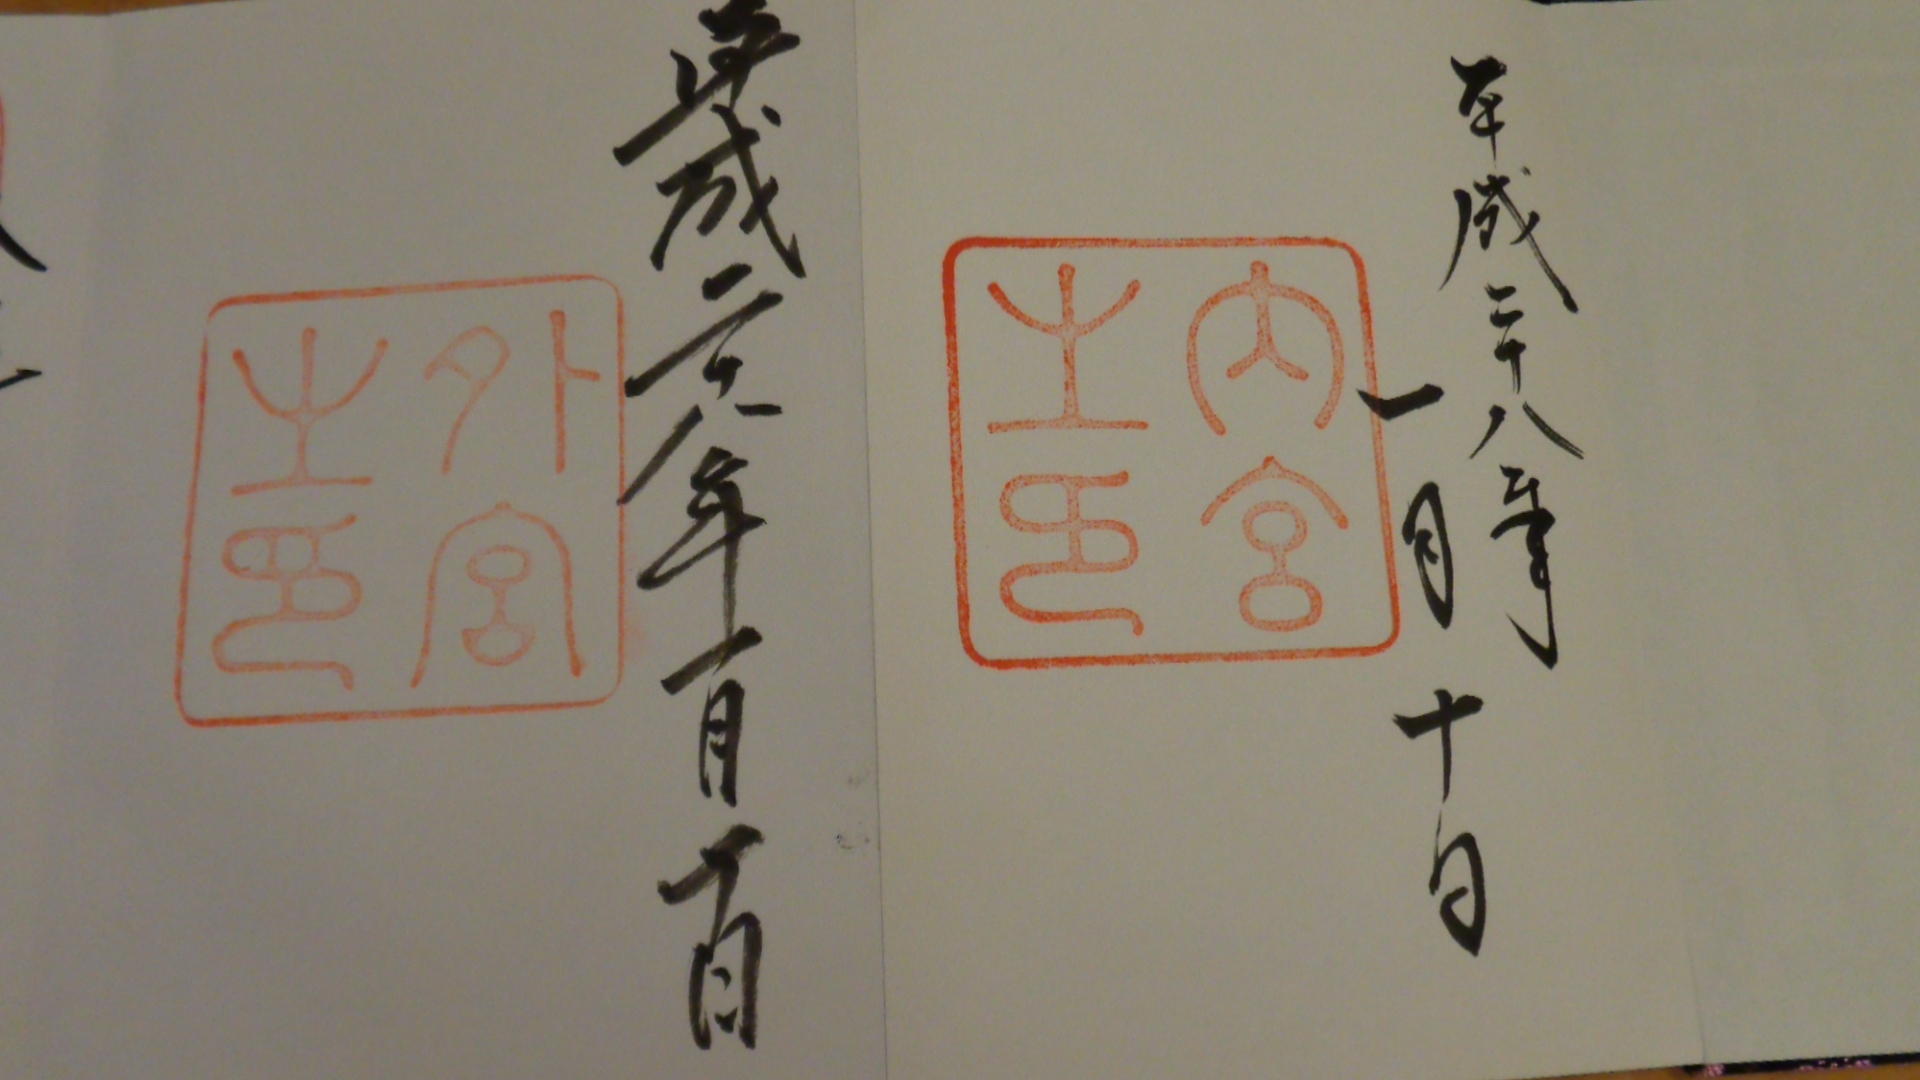 平成二十八年
一月十日
内宮
之印
平成二十八年一月十日
外宮
之印